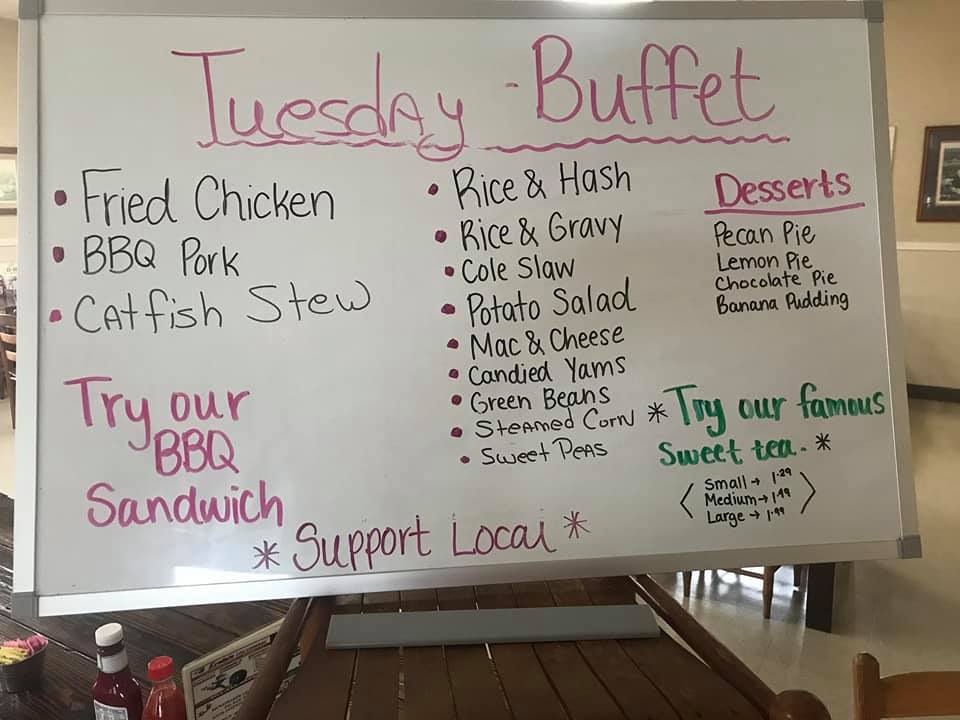 Tuesday - Buffet
• Fried Chicken
• BBQ Pork
• Catfish Stew
Try our
BBQ
Sandwich
• Rice & Hash
• Rice & Gravy
• Cole Slaw
• Potato Salad
• Mac & Cheese
• Candied Yams
• Green Beans
• Steamed Corn
• Sweet Peas
Desserts
Pecan Pie
Lemon Pie
Chocolate Pie
Banana Pudding
* Try our famous
Sweet tea. *
Small → 1.29
Medium → 1.49
Large → 1.99
* Support Local *